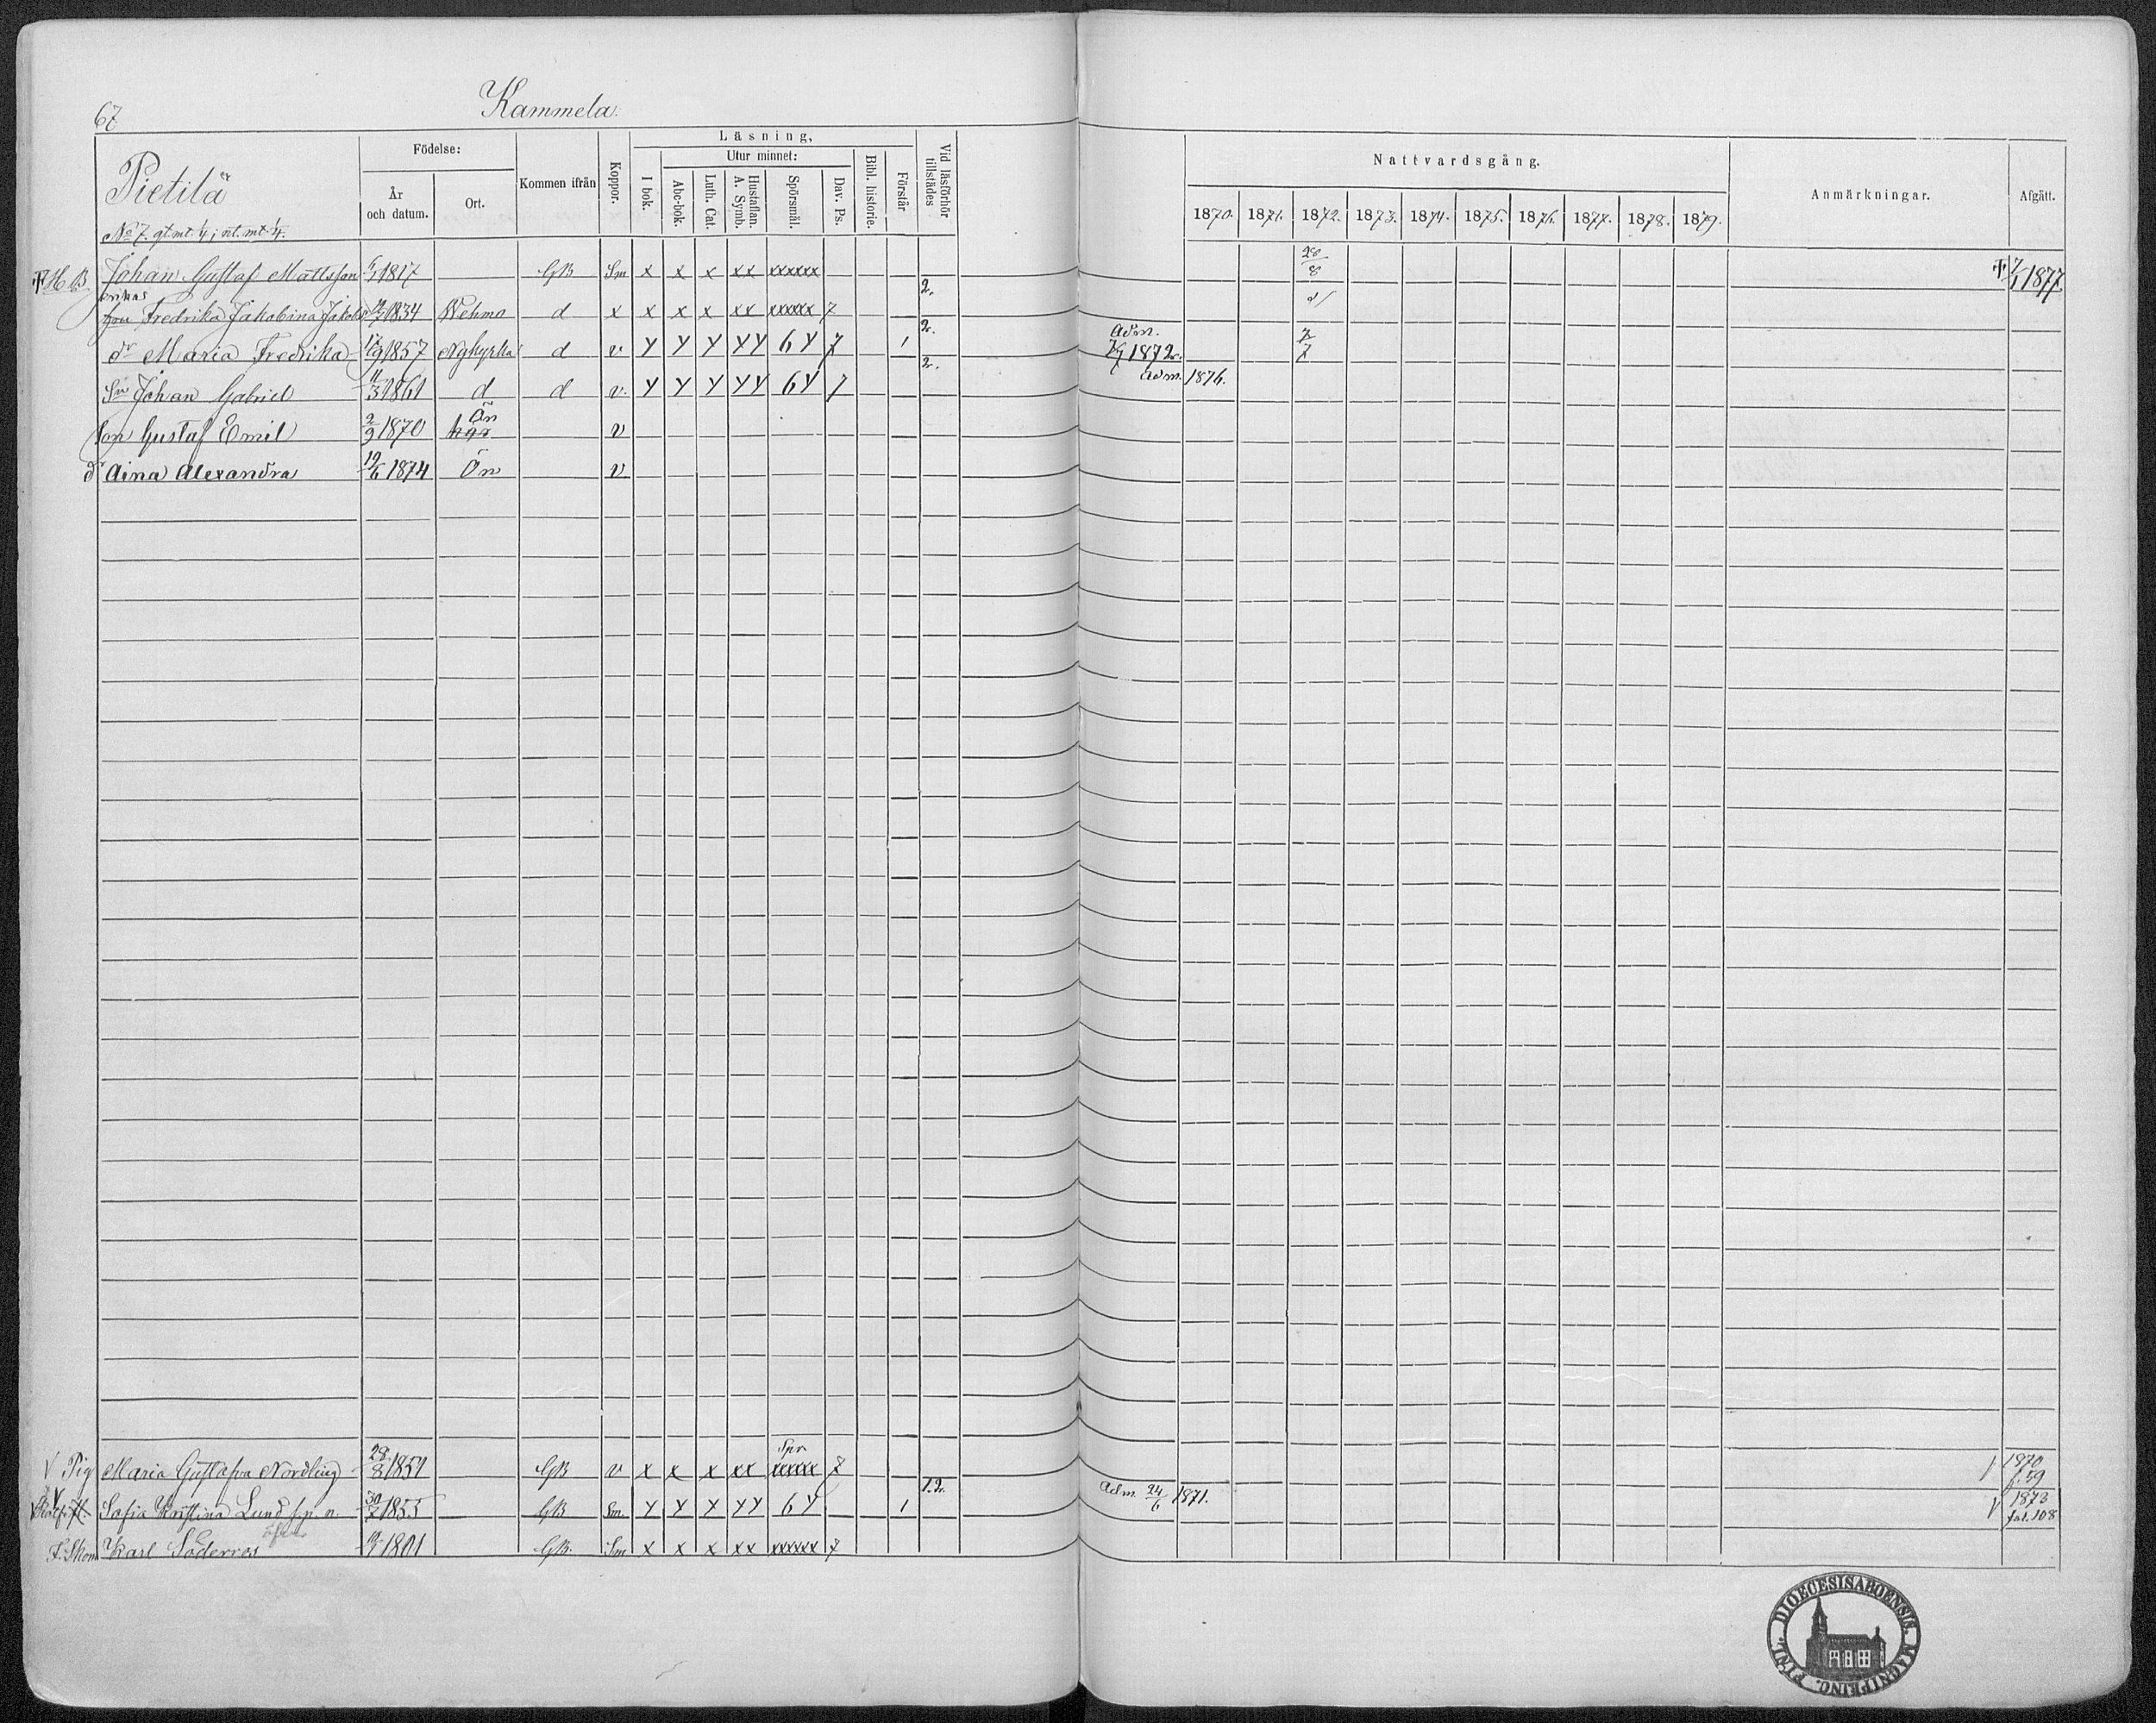 67.
Kammela.
Läsning,
Födelse:
Utur minnet:
Pietilä
År och datum.
Ort.
Kommen ifrån
Koppor.
I bok.
Abc-bok.
Luth. Cat.
Hustaflan. A. Symb.
Spörsmål.
Dav. Ps.
Bibl. historie.
Förstår
Vid läsförhör tillstädes
Nattvardsgång.
Anmärkningar.
Afgått.
1870. 1871. 1872. 1873. 1874. 1875. 1876. 1877. 1878. 1879.
No 7. gt. mt. 1/4; nt. mt. 1/4.
Johan Gustaf Mattsson 1817 GB Sm x x x xx xxxxxx 2. 28/8 † 7/1 1877
enkas
Fredrika Jakobina 1834 Wehmo d x x x x xx xxxxxx 7 2.
dr Maria Fredrika 1857 Nykyrka d v Y Y Y YY 6Y 7 1 2. Adm. 1872. 7/7
Sn Johan Gabriel 11/3 1861 d d v. Y Y Y YY 6Y 7 adm. 1876.
Son Gustaf Emil 2/9 1870 Ön v
d Aina Alexandra 19/6 1874 Ön v
V Pig Maria Gustafva Nordling 28/8 1851 GB v x x x xx Spr xxxxxx 7 1870 f. 59
Sofia Kristina Lund 30/7 1855 GB Sm. Y Y Y YY 6Y 1 1.2. Adm. 24/6 1871. V 1873 fol. 108
Karl Söderros 1801 GB. Sm x x x xx xxxxxx 7
FINL. DIOECESIS ABOENSIS. MAGNI PRINC.